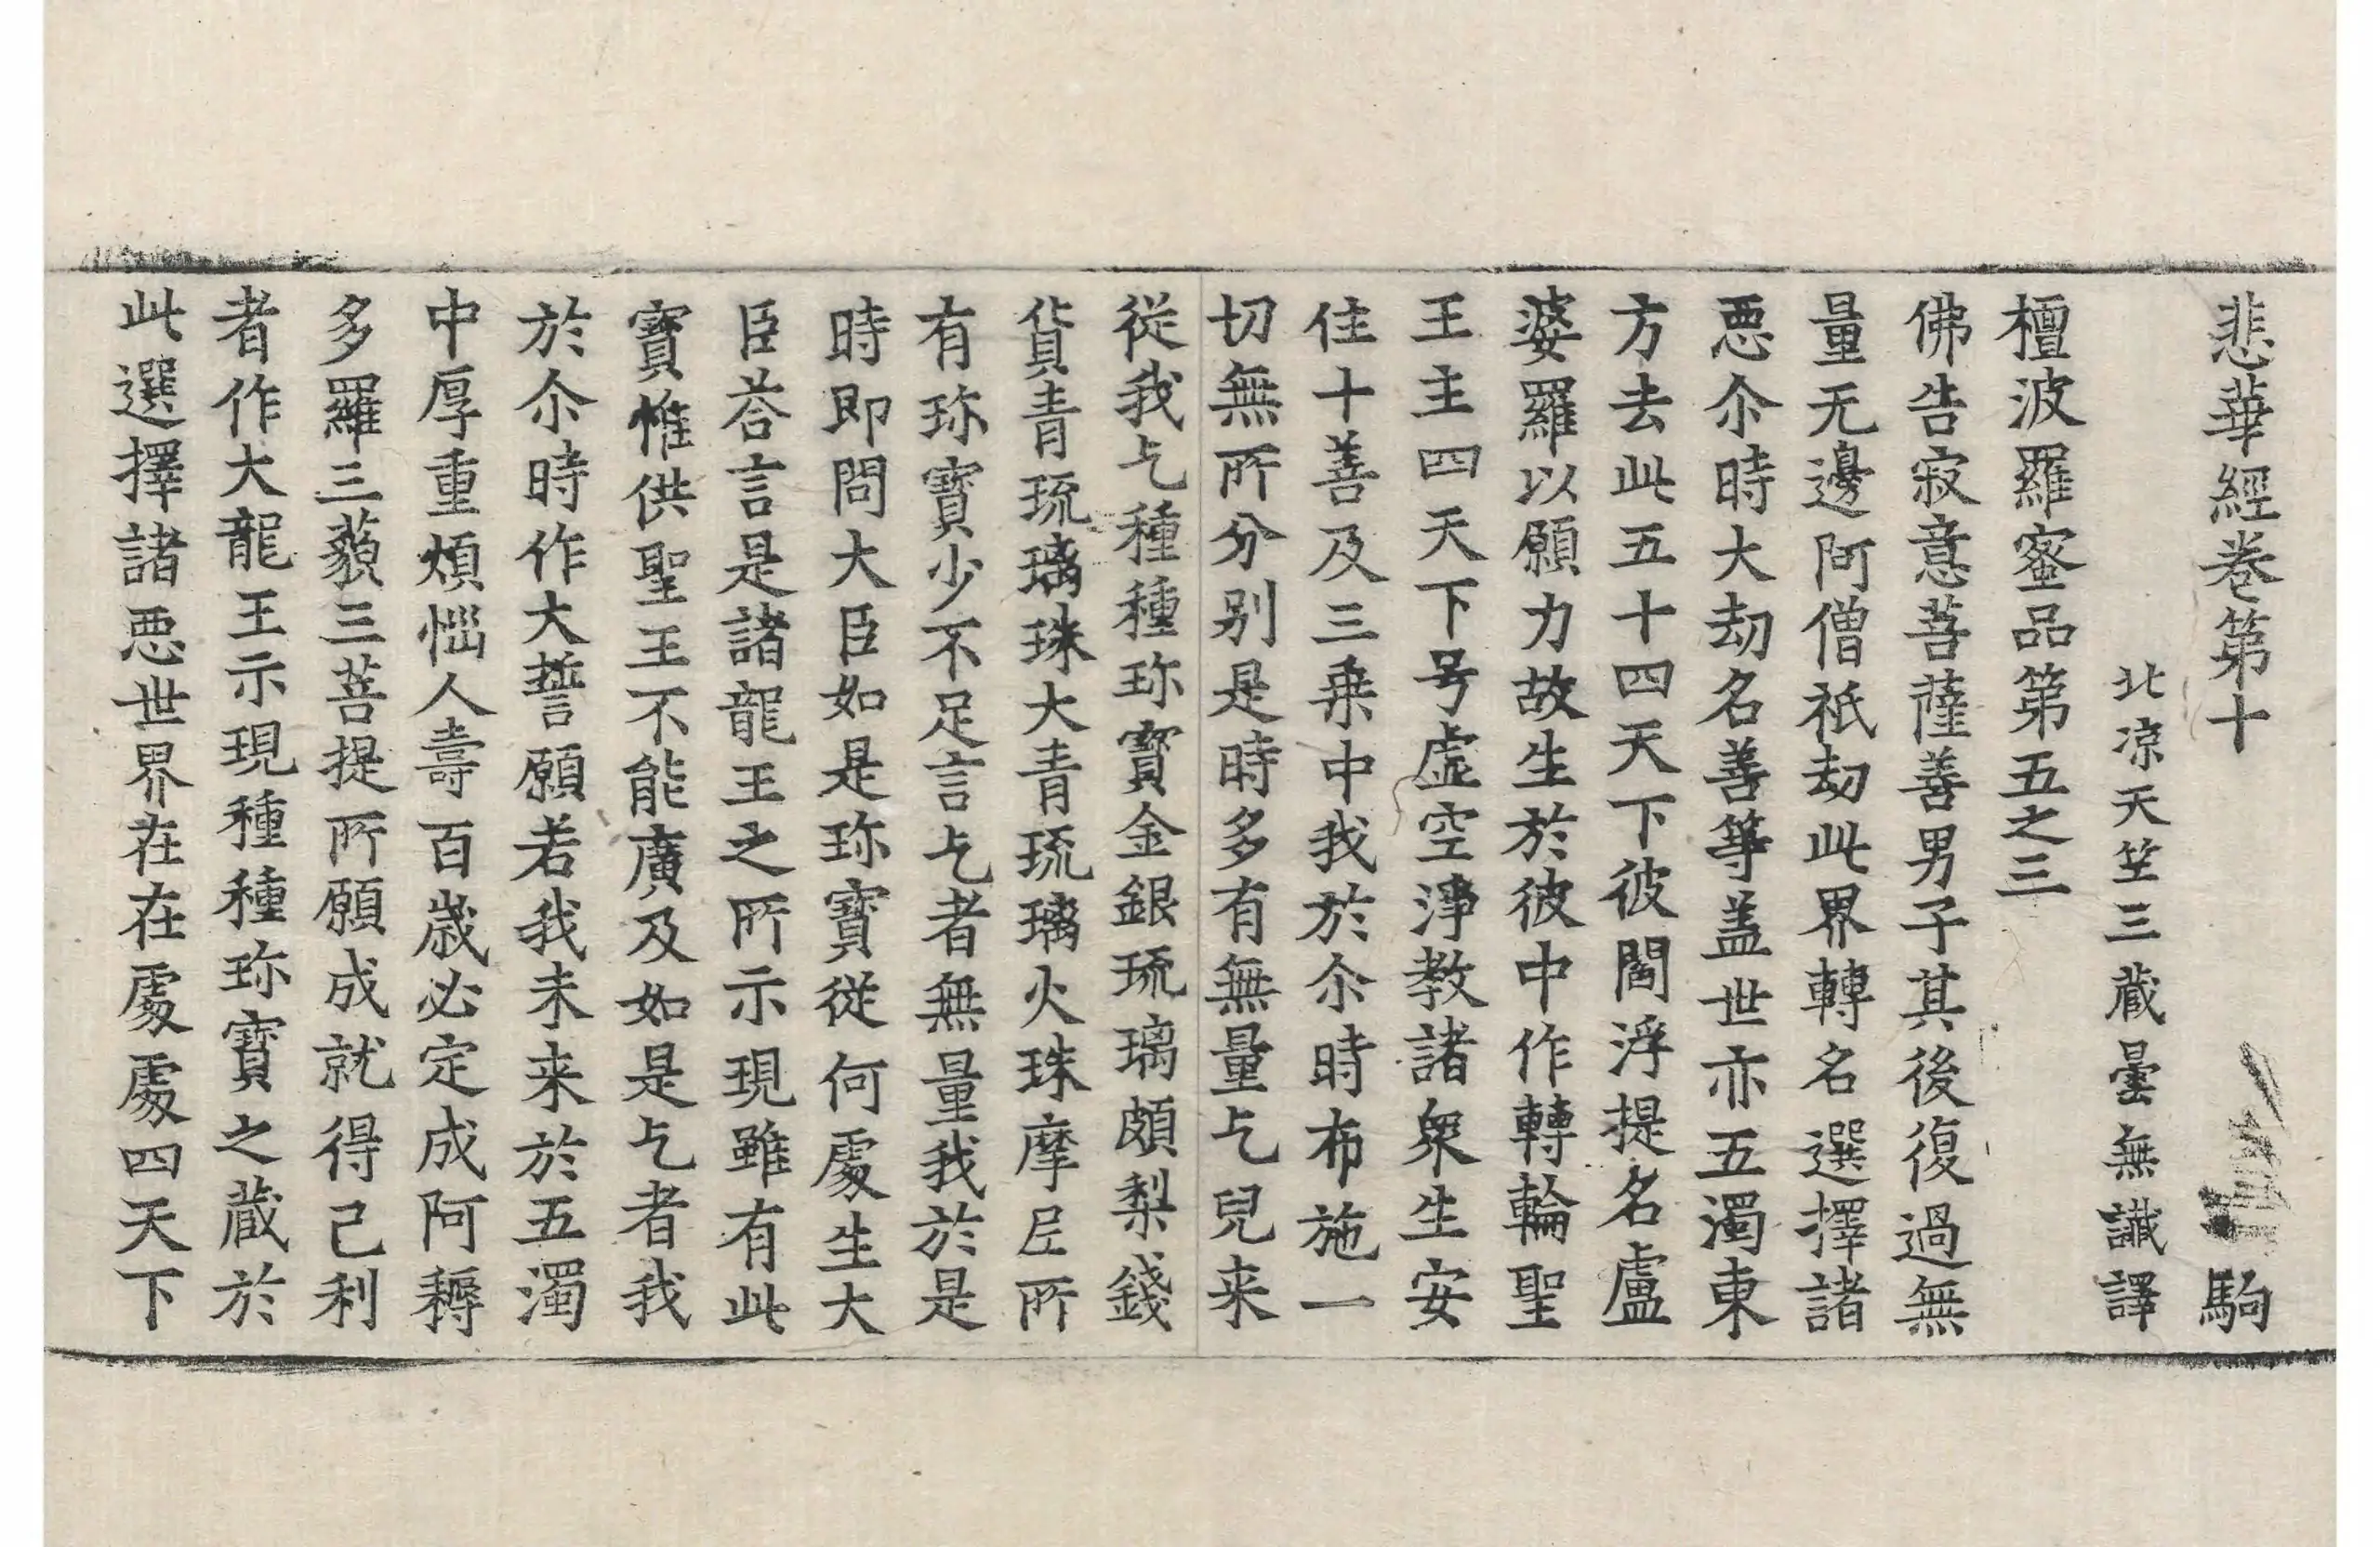 悲華經卷第十 駒
北涼天竺三藏曇無讖譯
檀波羅蜜品第五之三
佛告寂意菩薩善男子其後復過無
量无邊阿僧祇劫此界轉名選擇諸
悪尒時大劫名善等盖世亦五濁東
方去此五十四天下彼閻浮提名盧
婆羅以願力故生於彼中作轉輪聖
王主四天下号虚空淨教諸衆生安
住十善及三乗中我於尒時布施一
切無所分别是時多有無量乞兒来
從我乞種種珎寳金銀琉璃頗梨錢
貨青琉璃珠大青琉璃火珠摩尼所
有珎寳少不足言乞者無量我於是
時即問大臣如是珎寳從何處生大
臣荅言是諸龍王之所示現雖有此
寳惟供聖王不能廣及如是乞者我
於尒時作大誓願若我未来於五濁
中厚重煩惱人壽百歲必定成阿耨
多羅三藐三菩提所願成就得己利
者作大龍王示現種種珎寳之藏於
此選擇諸悪世界在在處處四天下